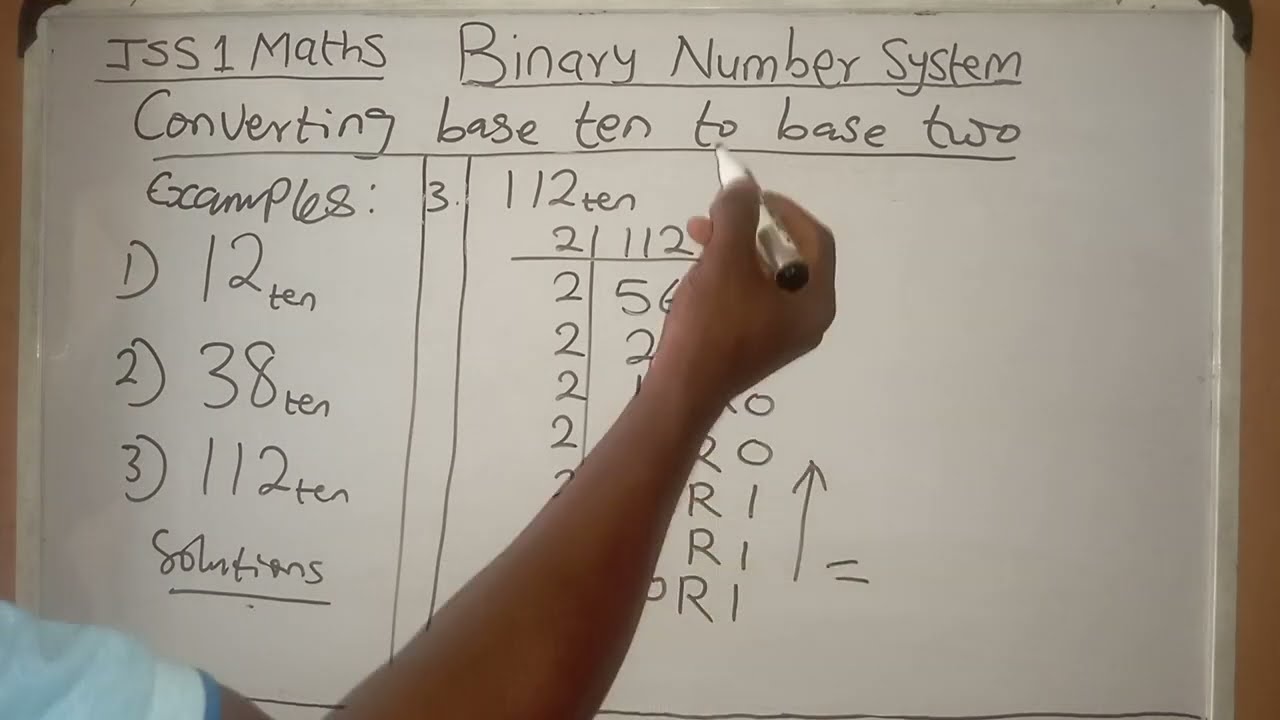 JSS1 Maths Binary Number System
Converting base ten to base two
Examples:
1) 12ten
2) 38ten
3) 112ten
Solutions
3. 112ten
2 112
2 56
2 2
2 1 R0
2 R 0
2 R 1
R 1
0 R 1
=